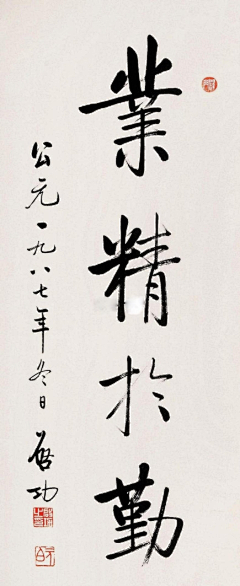 業精於勤
公元一九八七年冬日 啓功